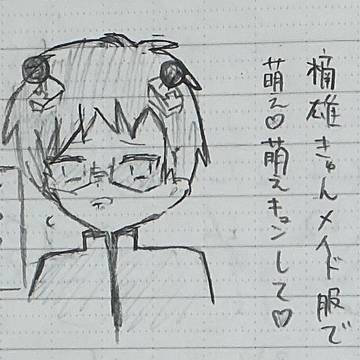 楠雄きゅんメイド服で
萌え♡萌えキュンして♡